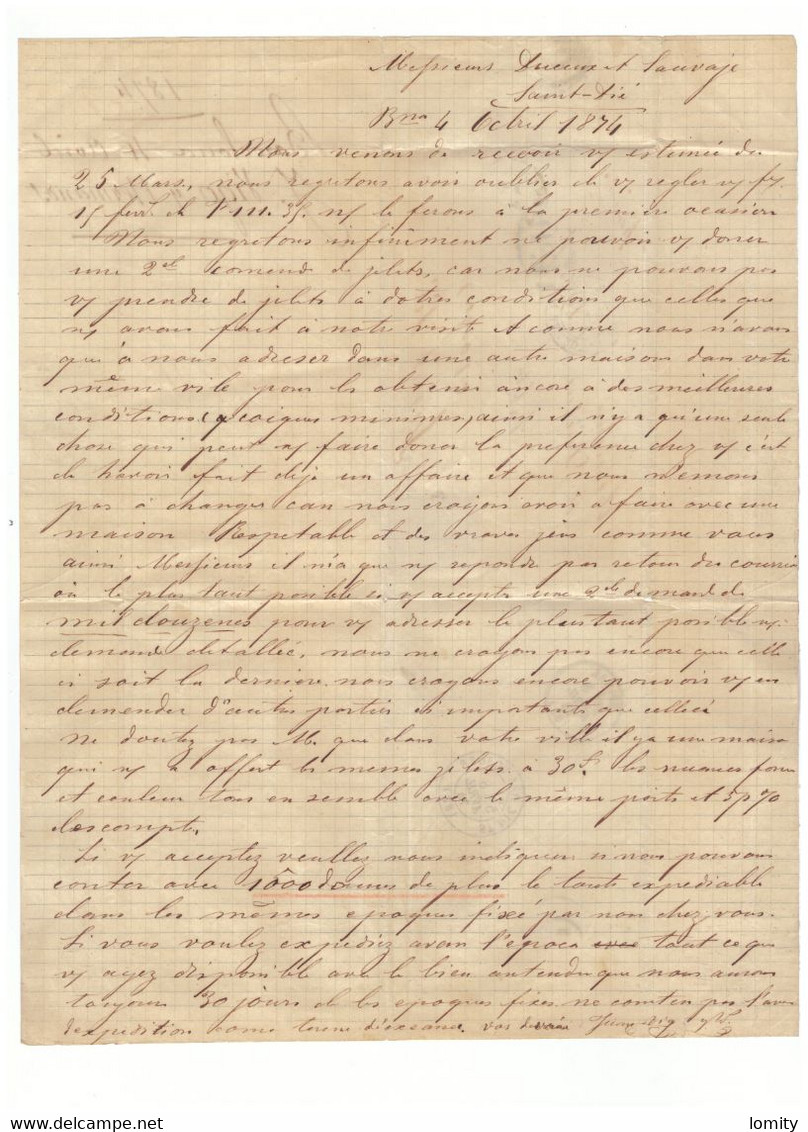 Messieurs Duceux et Sauvaje
Saint-Dié
Bna 4 Avril 1874
Nous venons de recevoir vs estimée du
25 Mars, nous regretons avoir oublier de vs regler vs fre
15 fevr. de F 111.35. ns le ferons à la première ocasion
Nous regretons infinément ne pouvoir vs doner
une 2de comende de jilets, car nous ne pouvons pas
vs prendre de jilets à dotres conditions que celles que
ns avons fait à notre visite et comme nous n'avons
que à nous adreser dans une autre maisons dans votre
même vile pour les obtenir àncore à des meilleures
conditions (qcoique minimes, ainsi il n'y a qu'une seule
chose qui peut ns faire doner la preference chez vs c'est
de havoir fait deja un affaire et que nous n'emons
pas à changer car nous crayons avoir a faire avec une
maison Respetable et des vraves jens comme vous
ainsi Messieurs il n'a que ns reponde par retour du courrier
ou le plus taut posible si vs accepte une 2de demande de
mil douzenes pour vs adresser le plus taut posible ns-
demande detallée, nous ne crayons pas encore que celle
ci soit la derniere. nous crayons encore pouvoir vs en
demender d'autre porties si importants que celle ci
Ne doutez pas Mr. que dans votre ville il y a une maison
qui ns a offert les memes jilets à 30f. les nuances fonce
et couleur tous en semble avec le même ports et 5 p %
descompte.
Si vs acceptez veullez nous indiquer si nous pouvons
conter avec 1000 dounes de plus le toute expediable
dans les mêmes epoques fixé par nous chez vous.
Si vous voulez expediez avan l'epoca tout ce que
vs ayez disponible avec le bien entendu que nous aurons
toujours 30 jours de les epoques fixes. ne conten pas l'avan
d'expedition come terme d'exeance. vos devoués Juan